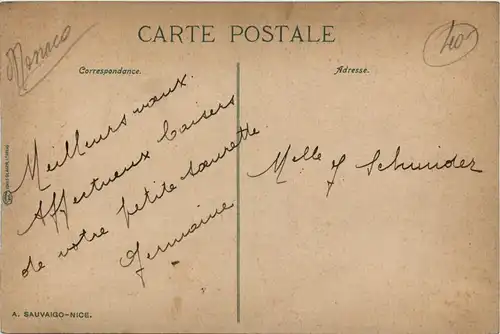 Monaco
CARTE POSTALE
400
Correspondance.
Adresse.
Meilleurs vœux.
Affectueux baisers
de votre petite sœurette
Germaine
Melle J Schnider
A. SAUVAIGO-NICE.